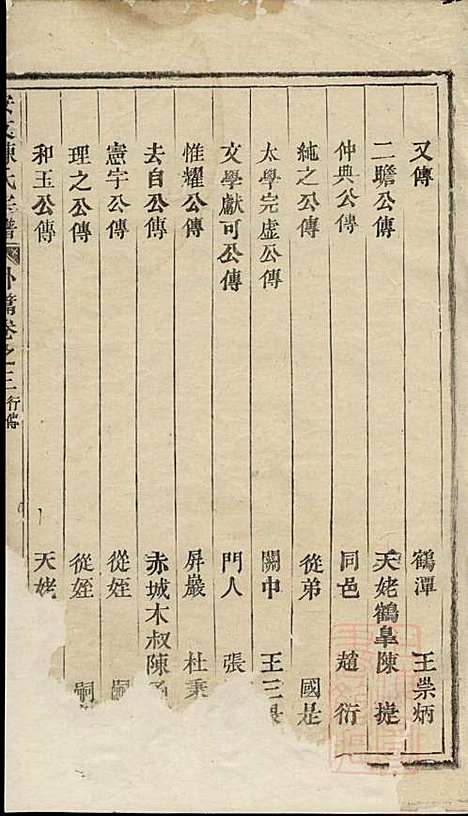 又傳 鶴潭 王崇炳
二瞻公傳 天姥鶴皐陳捷
仲典公傳 同邑 趙衍
純之公傳 從弟 國是
太學完虛公傳 關中 王三
文學獻可公傳 門人 張
惟耀公傳 屏巖 杜秉
去自公傳 赤城木叔陳
憲宇公傳 從姪 嗣
理之公傳 從姪 嗣
和玉公傳 天姥
陳氏宗譜 外篇卷之三 行傳